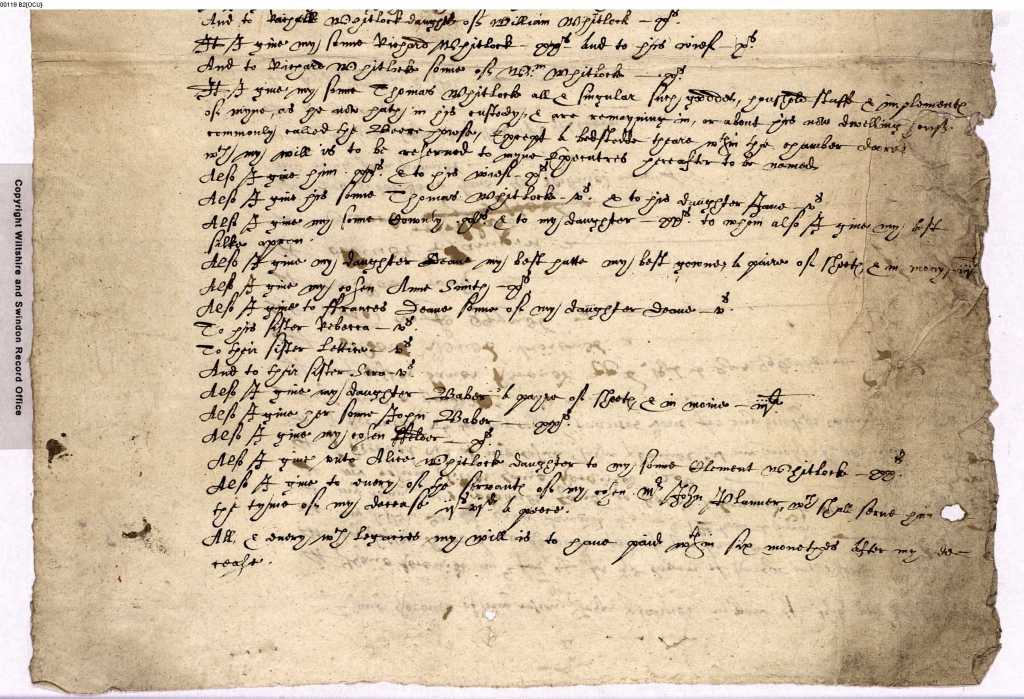 00119 B2[OCU]
And to Rachell Whitlock daughter of William Whitlock – xs
It I give my sonne Richard Whitlock – xxs and to his wief – xs
And to Richard Whitlock sonne of Wm Whitlock – xs
It I give my sonne Thomas Whitlock all & singular such goodes, houshold stuffe & implements
of myne, as he now hath in his custody, & are remayning in, or about his now dwelling house
commonly called the house, Except a bedstedde theare wthin the chamber doore
wch my will is to be returned to myne Executres hereafter to be named
Also I give him xxs & to his wief – xs
Also I give his sonne Thomas Whitlock – vs. & to his daughter Jane – vs
Also I give my sonne & to my daughter – xxs to whom also I give my best
silke apron.
Also I give my daughter Deane my best hatte my best gowne, a paire of sheets, & in mony
Also I give my cosen Anne Smith – xs
Also I give to ffrances Deane sonne of my daughter Deane – vs
To his sister Rebecca – vs.
To their sister Lettice – vs
And to their sister Sera – vs
Also I give my daughter Baber a payre of sheets & in monie –
Also I give her sonne John Baber – xxs.
Also I give my cosen – xs.
Also I give unto Alice Whitlock daughter to my sonne Clement Whitlock – xxs
Also I give to every of the servants of my cosen Mr John Planner, wch shall serve him
the tyme of my decease ijs vjd a peece.
All, & every wch legacies my will is to have paid wthin six monethes after my de–
cease.
Copyright Wiltshire and Swindon Record Office